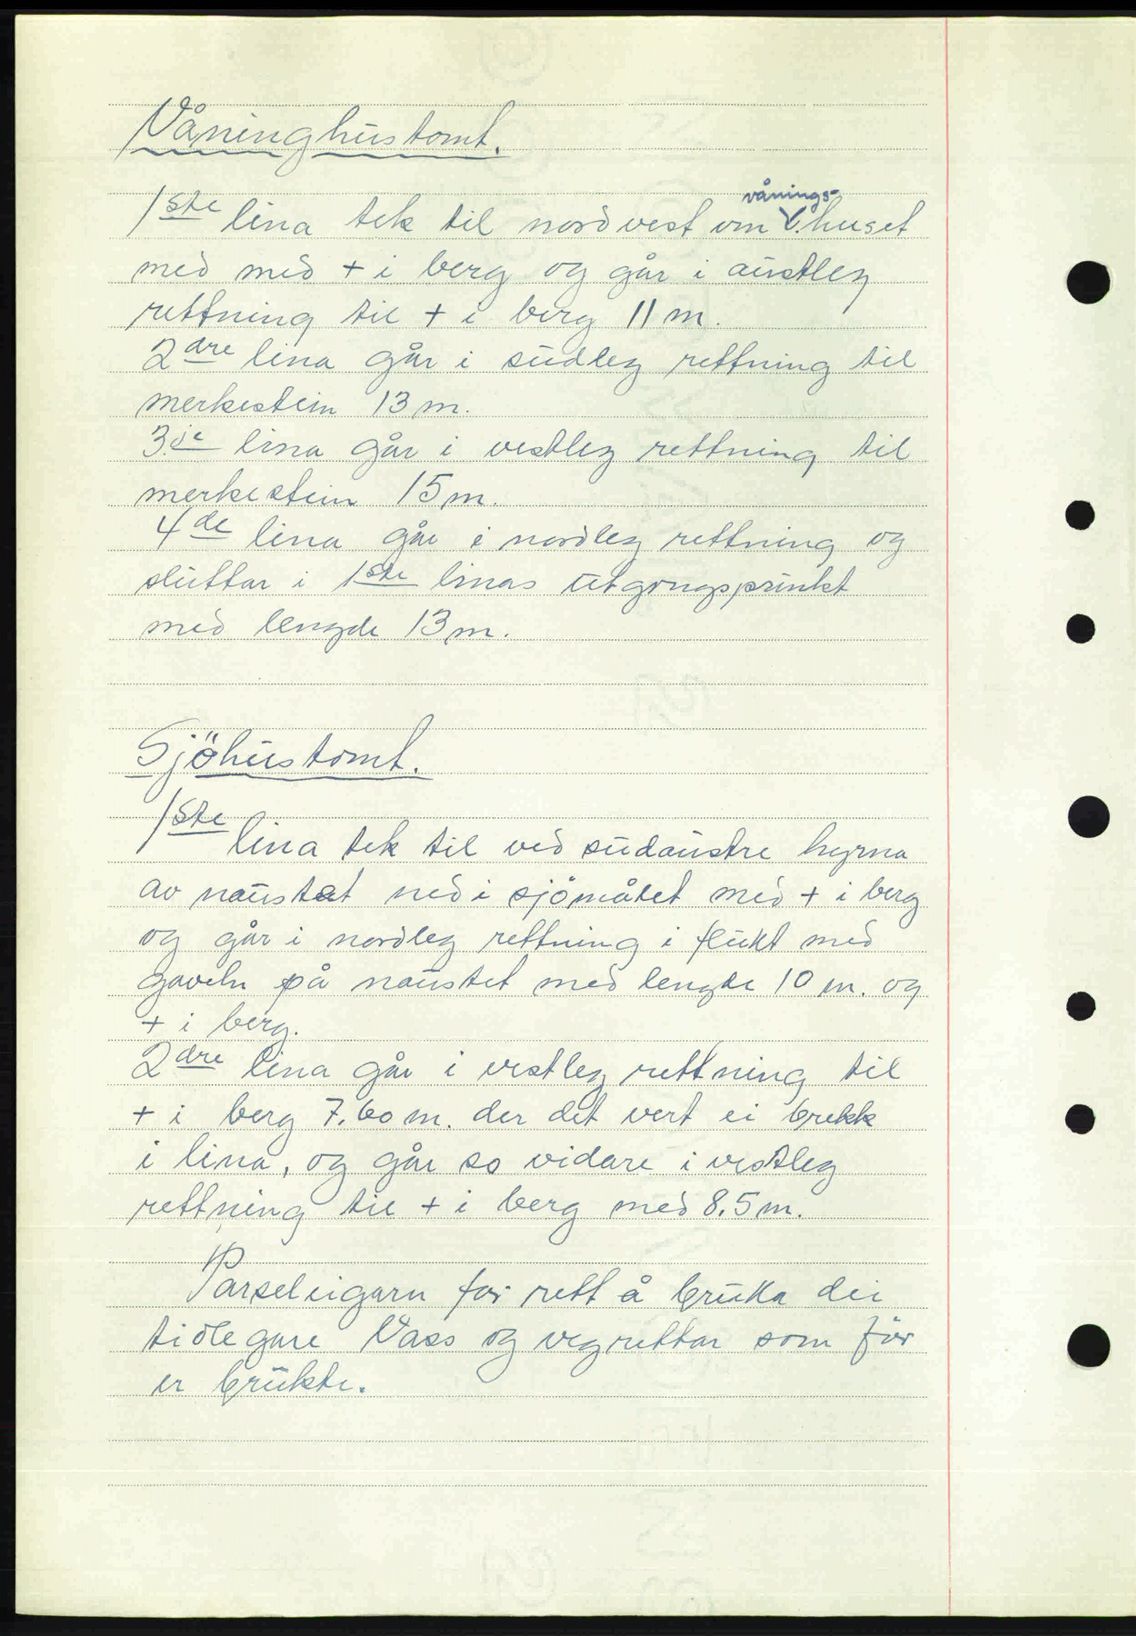 Våninghustomt.
1ste lina tek til nordvest om V.huset
vånings-
med med + i berg og går i austleg
rettning til + i berg 11 m.
2dre lina går i sudleg rettning til
merkestein 13 m.
3je lina går i vestleg rettning til
merkestein 15 m.
4de lina går i nordleg rettning og
sluttar i 1ste linas utgongspunkt
med lengde 13 m.
Sjöhustomt.
1ste lina tek til ved sudaustre hyrna
av naustet ned i sjömålet med + i berg
og går i nordleg rettning i flukt med
gaveln på naustet med lengde 10 m. og
+ i berg.
2dre lina går i vestleg rettning til
+ i berg 7.60 m. der det vert ei brekk
i lina, og går so vidare i vestleg
rettning til + i berg med 8.5 m.
Parseleigarn får rett å bruka dei
tidlegare Vass og vegrettar som för
er brukte.